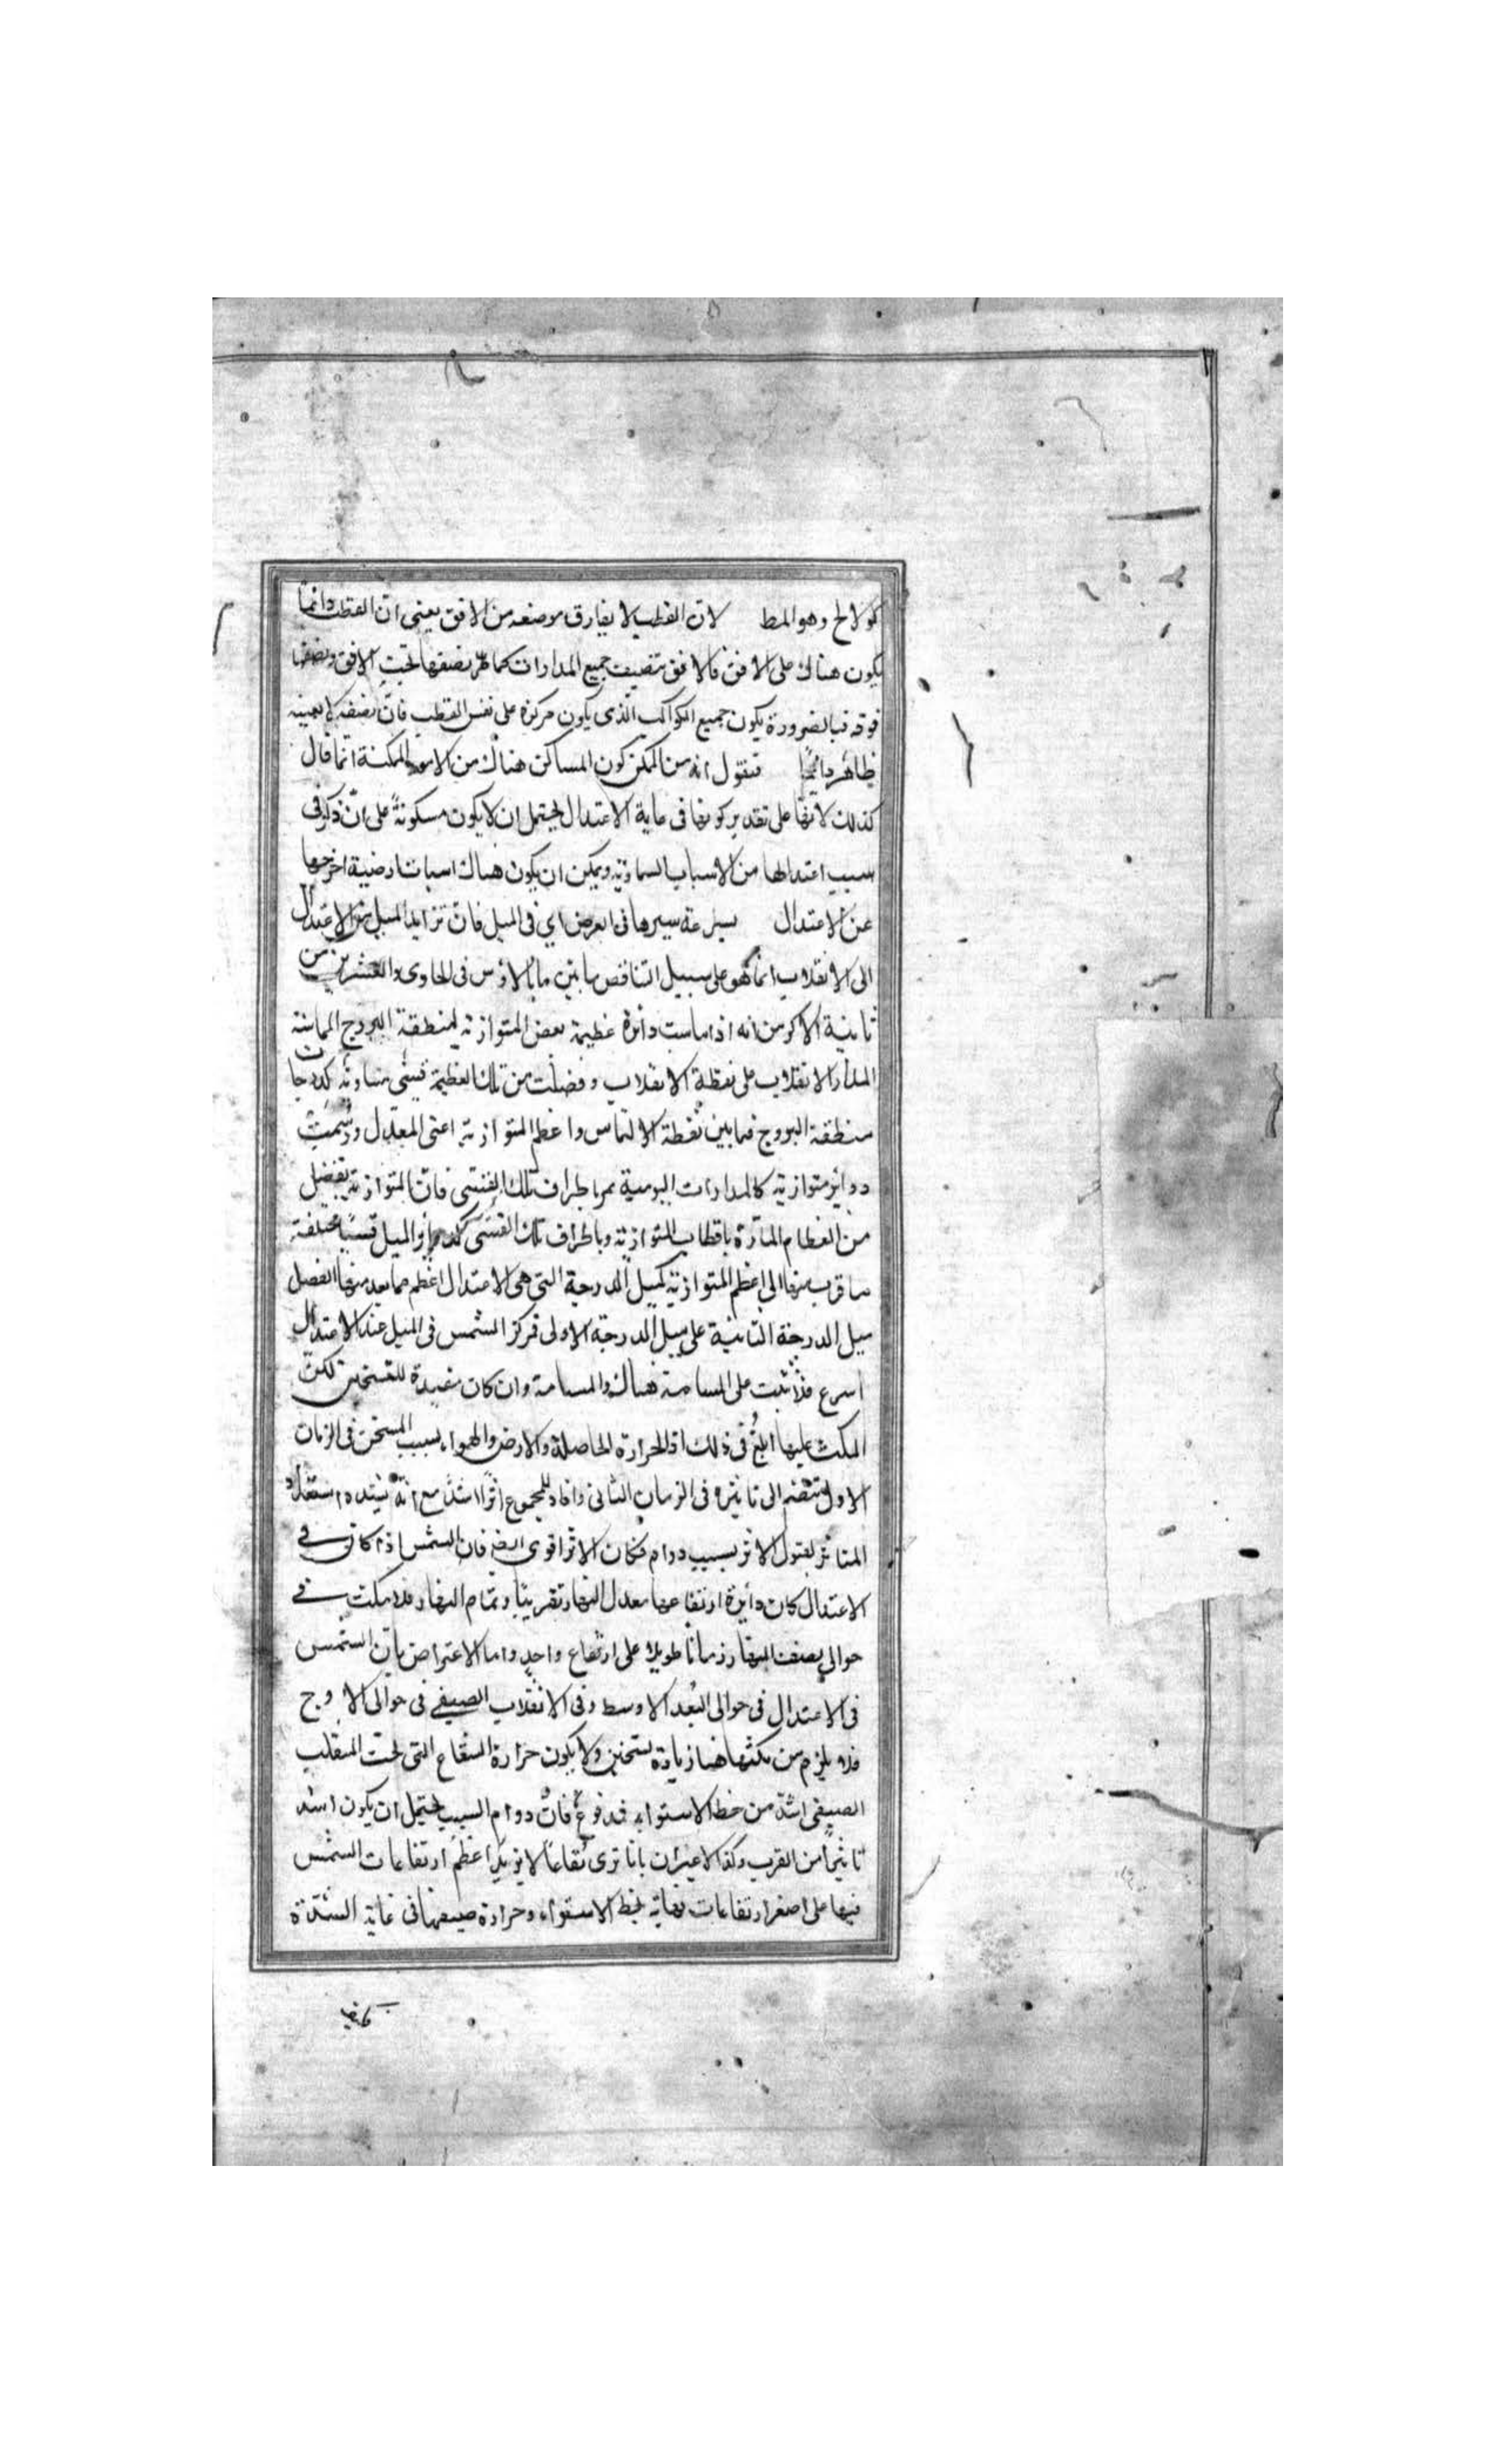 كولالح وهو المط لان القطب لا يفارق موضعه من الافق يعنى ان القطب دائما
يكون هناك على الافق فالافق تنصيف جميع المدارات كما مر نصفها تحت الافق ونصفها
فوقه فبالضرورة يكون جميع الكواكب الذى يكون مركزه على نفس القطب فان نصفه لا بعينه
ظاهر دائما فنقول انه من الممكن كون المساكن هناك من الامور الممكنة انما قال
كذلك لانها على تقدير كونها فى غاية الاعتدال يحتمل ان لا يكون مسكونة على ان ذكر فى
سبب اعتدالها من الاسباب السماوية ويمكن ان يكون هناك اسباب ارضية اخرجها
عن الاعتدال بسرعة سيرها فى العرض اى فى الميل فان تزايد الميل من الاعتدال
الى الانقلاب انما هو على سبيل التناقص ما بين مانالاوس فى الحادى والعشرين من
ثانية الاكر من انه اذا ماست دائرة عظيمة بعض المتوازية لمنطقة البروج المماسة
المدار الانقلاب على نقطة الانقلاب وفصلت من تلك العظيمة قسى متساوية كدرجات
منطقة البروج فيما بين نقطة الالتماس واعظم المتوازية اعنى المعدل ورسمت
دوائر متوازية كالمدارات اليومية تمر باطراف تلك القسى فان المتوازية تفصل
من العظام المارة باقطاب المتوازية وباطراف تلك القسى كدوائر الميل قسيا مختلفة
ما قرب منها الى اعظم المتوازية كميل الدرجة التى هى الاعتدال اعظم مما بعد منها الفضل
ميل الدرجة الثانية على ميل الدرجة الاولى فمركز الشمس فى الميل عند الاعتدال
اسرع فلا تثبت على المسامتة هناك والمسامتة وان كان مفيدة للتسخين لكن
المكث عليها ابلغ فى ذلك اذ الحرارة الحاصلة والارض والهواء بسبب المسخن فى الزمان
الاول تنضم الى تاثيره فى الزمان الثانى وافاد المجموع اثرا اشد مع انه يشتد استعداد
المتاثر لقبول الاثر بسبب دوام فكان الاثر اقوى ايضا فان الشمس اذا كان فى
الاعتدال كان دائرة ارتفاعها معدل النهار تقريبا وتمام النهار فلا مكث فى
حوالى نصف النهار زمانا طويلا على ارتفاع واحد واما الاعتراض بان الشمس
فى الاعتدال فى حوالى البعد الاوسط وفى الانقلاب الصيفى فى حوالى الاوج
فلا يلزم من مكثها هنا زيادة تسخين ولا يكون حرارة البقاع التى تحت المنقلب
الصيفى اشد من خط الاستواء فمدفوع فان دوام السبب يحتمل ان يكون اشد
تاثيرا من القرب وكذا الاعتراض بانا نرى بقاعا لا يزيد اعظم ارتفاعات الشمس
فيها على اصغر ارتفاعات نهاية بخط الاستواء وحرارة صيفها فى غاية الشدة